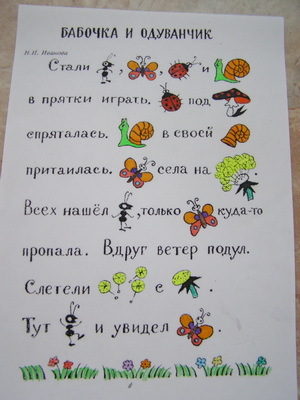 БАБОЧКА И ОДУВАНЧИК
Н.П. Иванова
Стали , , и
в прятки играть. под
спряталась. в своей
притаилась. села на .
Всех нашёл ,только куда-то
пропала. Вдруг ветер подул.
Слетели с .
Тут и увидел .